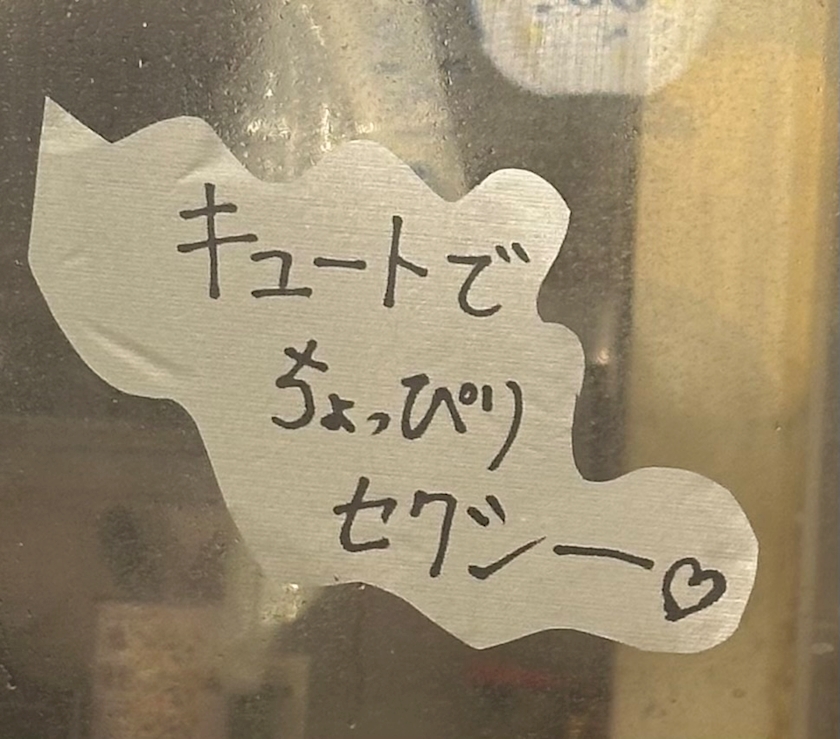 キュートで
ちょっぴり
セクシー♡